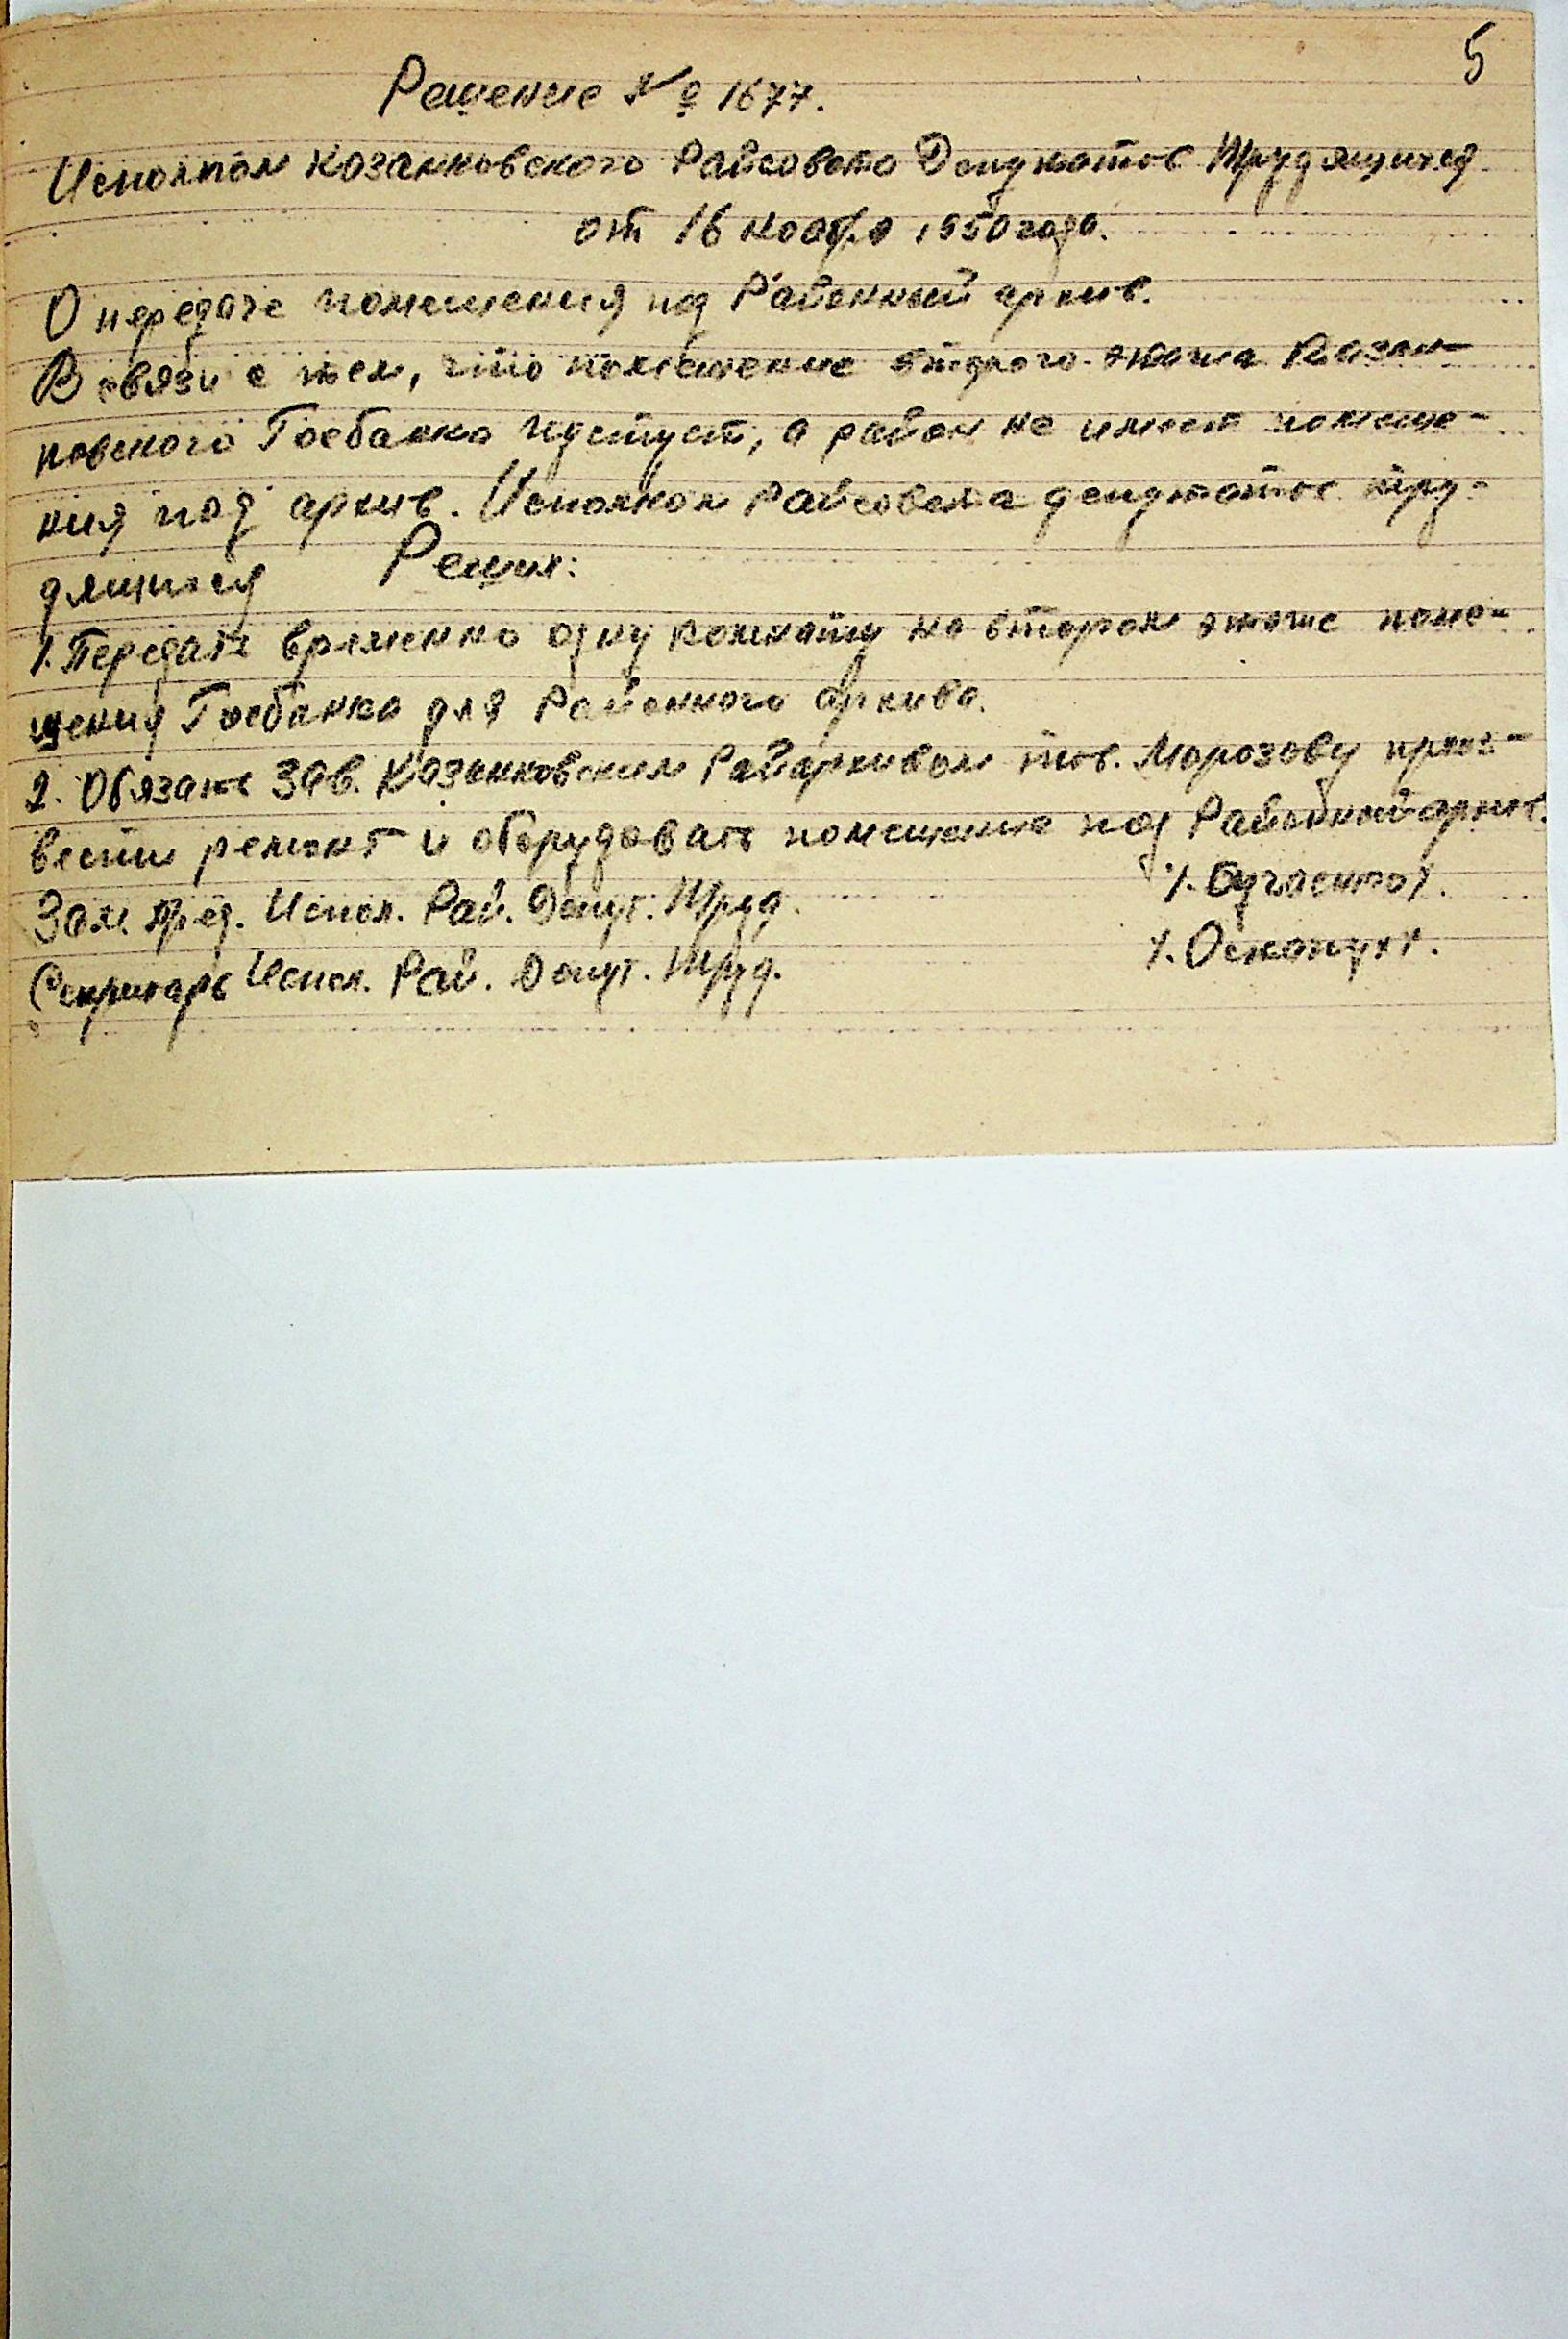 5
Решение № 1677.
Исполком Козанковского Райсовета Депутатов Трудящихся.
от 16 ноября 1950 года.
О передаче помещения под Районный архив.
В связи с тем, что помещение второго этажа Казан-
ковского Госбанка пустует, а район не имеет помеще-
ния под архив. Исполком Райсовета депутатов тру-
дящихся Решил:
1. Передать временно одну комнату на втором этаже поме-
щения Госбанка для Районного архива.
2. Обязать Зав. Казанковским Райархивом тов. Морозову произ-
вести ремонт и оборудовать помещение под Районный архив.
Зам. пред. Испол. Рай. Депут. Труд.
Секритарь Испол. Рай. Депут. Труд.